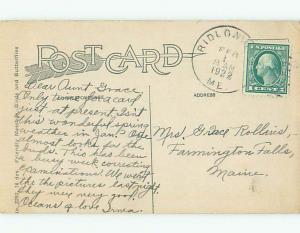 POST CARD
RIDLON
FEB
1
8 AM
1922
ME.
1 CENT 1
ADDRESS
Dear Aunt Grace
Only time for a card
just at present. Isn't
this wonderful spring
weather in Jan? One
almost looks for the
buds. This has been
a busy week correcting
examinations! We went
to the pictures last night
they were very good.
Oceans of love Irma.
Mrs. Grace Rollins,
Farmington Falls,
Maine.